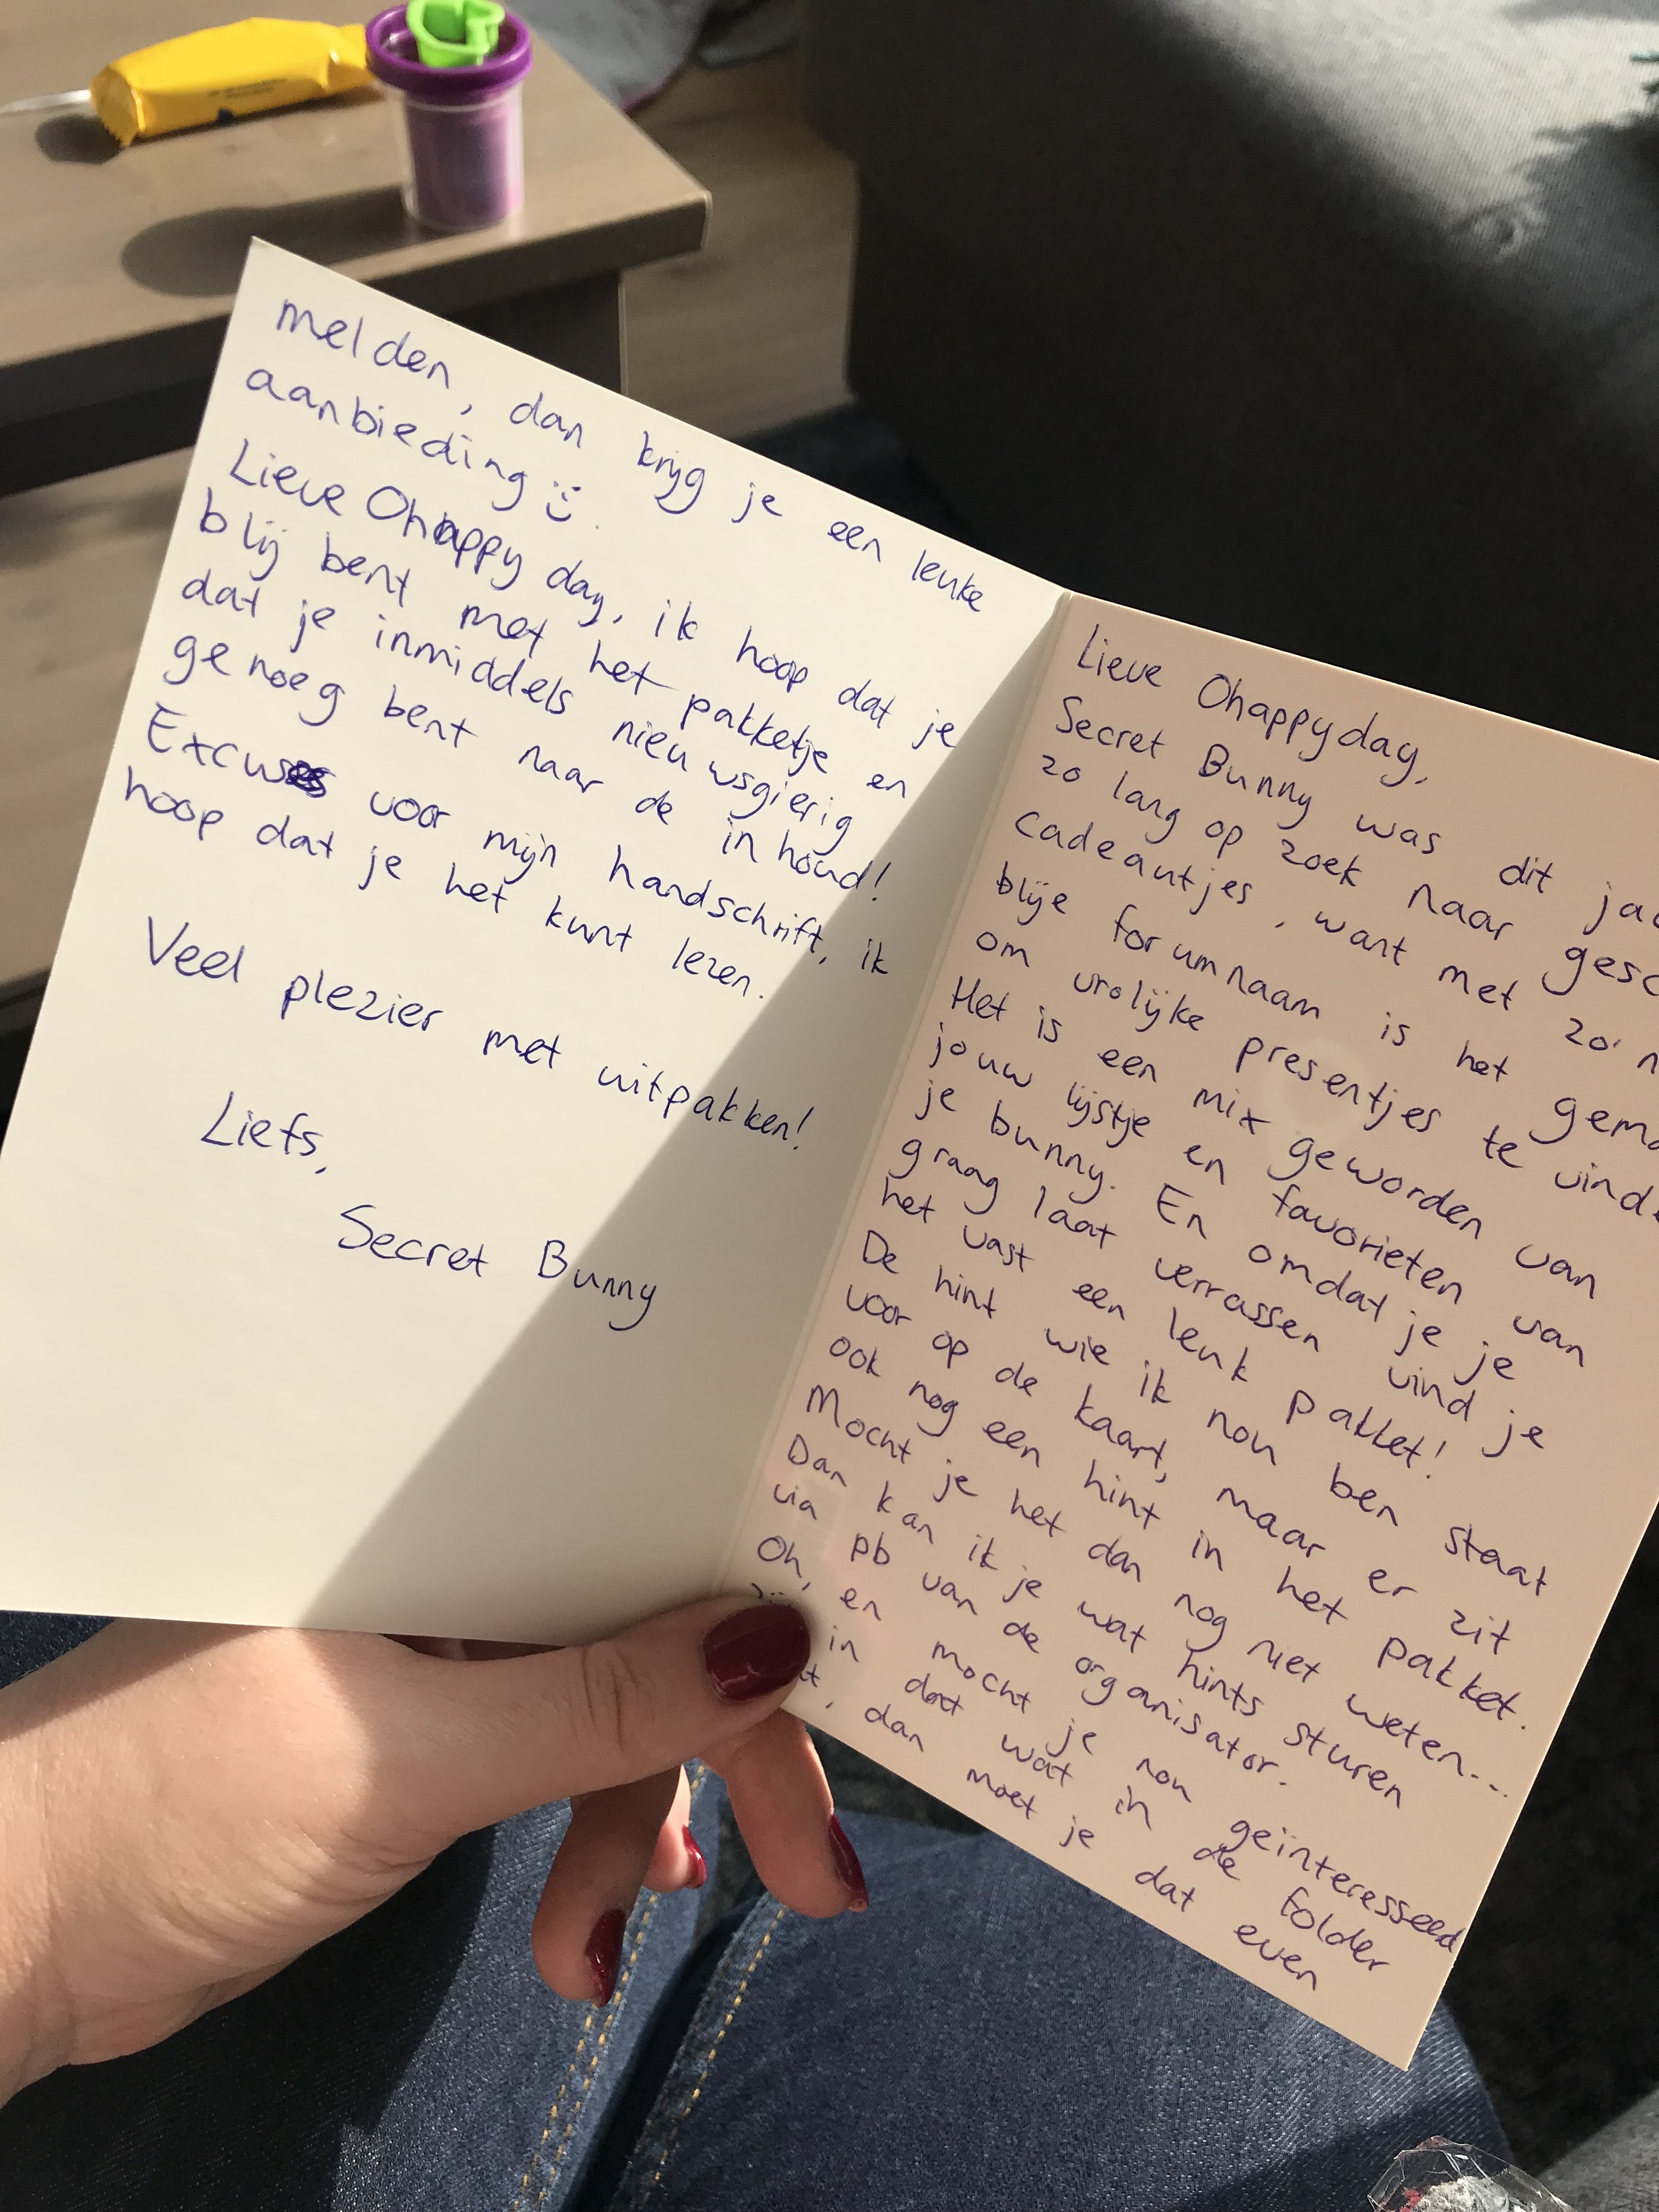 Lieve Ohappyday,
Secret Bunny was dit
zo lang op zoek naar
cadeautjes, want met zo'n
blije forumnaam is het
om vrolijke presentjes te
Het is een mix geworden van
jouw lijstje en favorieten van
je bunny. En omdat je je
graag laat verrassen vind je
het vast een leuk pakket!
De hint wie ik nou ben staat
voor op de kaart, maar er zit
ook nog een hint in het pakket.
Mocht je het dan nog niet weten...
Dan kan ik je wat hints sturen
via pb van de organisator.
Oh, en mocht je nou geïnteresseed
in dat wat in de folder
, dan moet je dat even
melden, dan krijg je een leuke
aanbieding :)
Lieve Ohappy day, ik hoop dat je
blij bent met het pakketje en
dat je inmiddels nieuwsgierig
genoeg bent naar de inhoud!
Excuses voor mijn handschrift, ik
hoop dat je het kunt lezen.
Veel plezier met uitpakken!
Liefs,
Secret Bunny